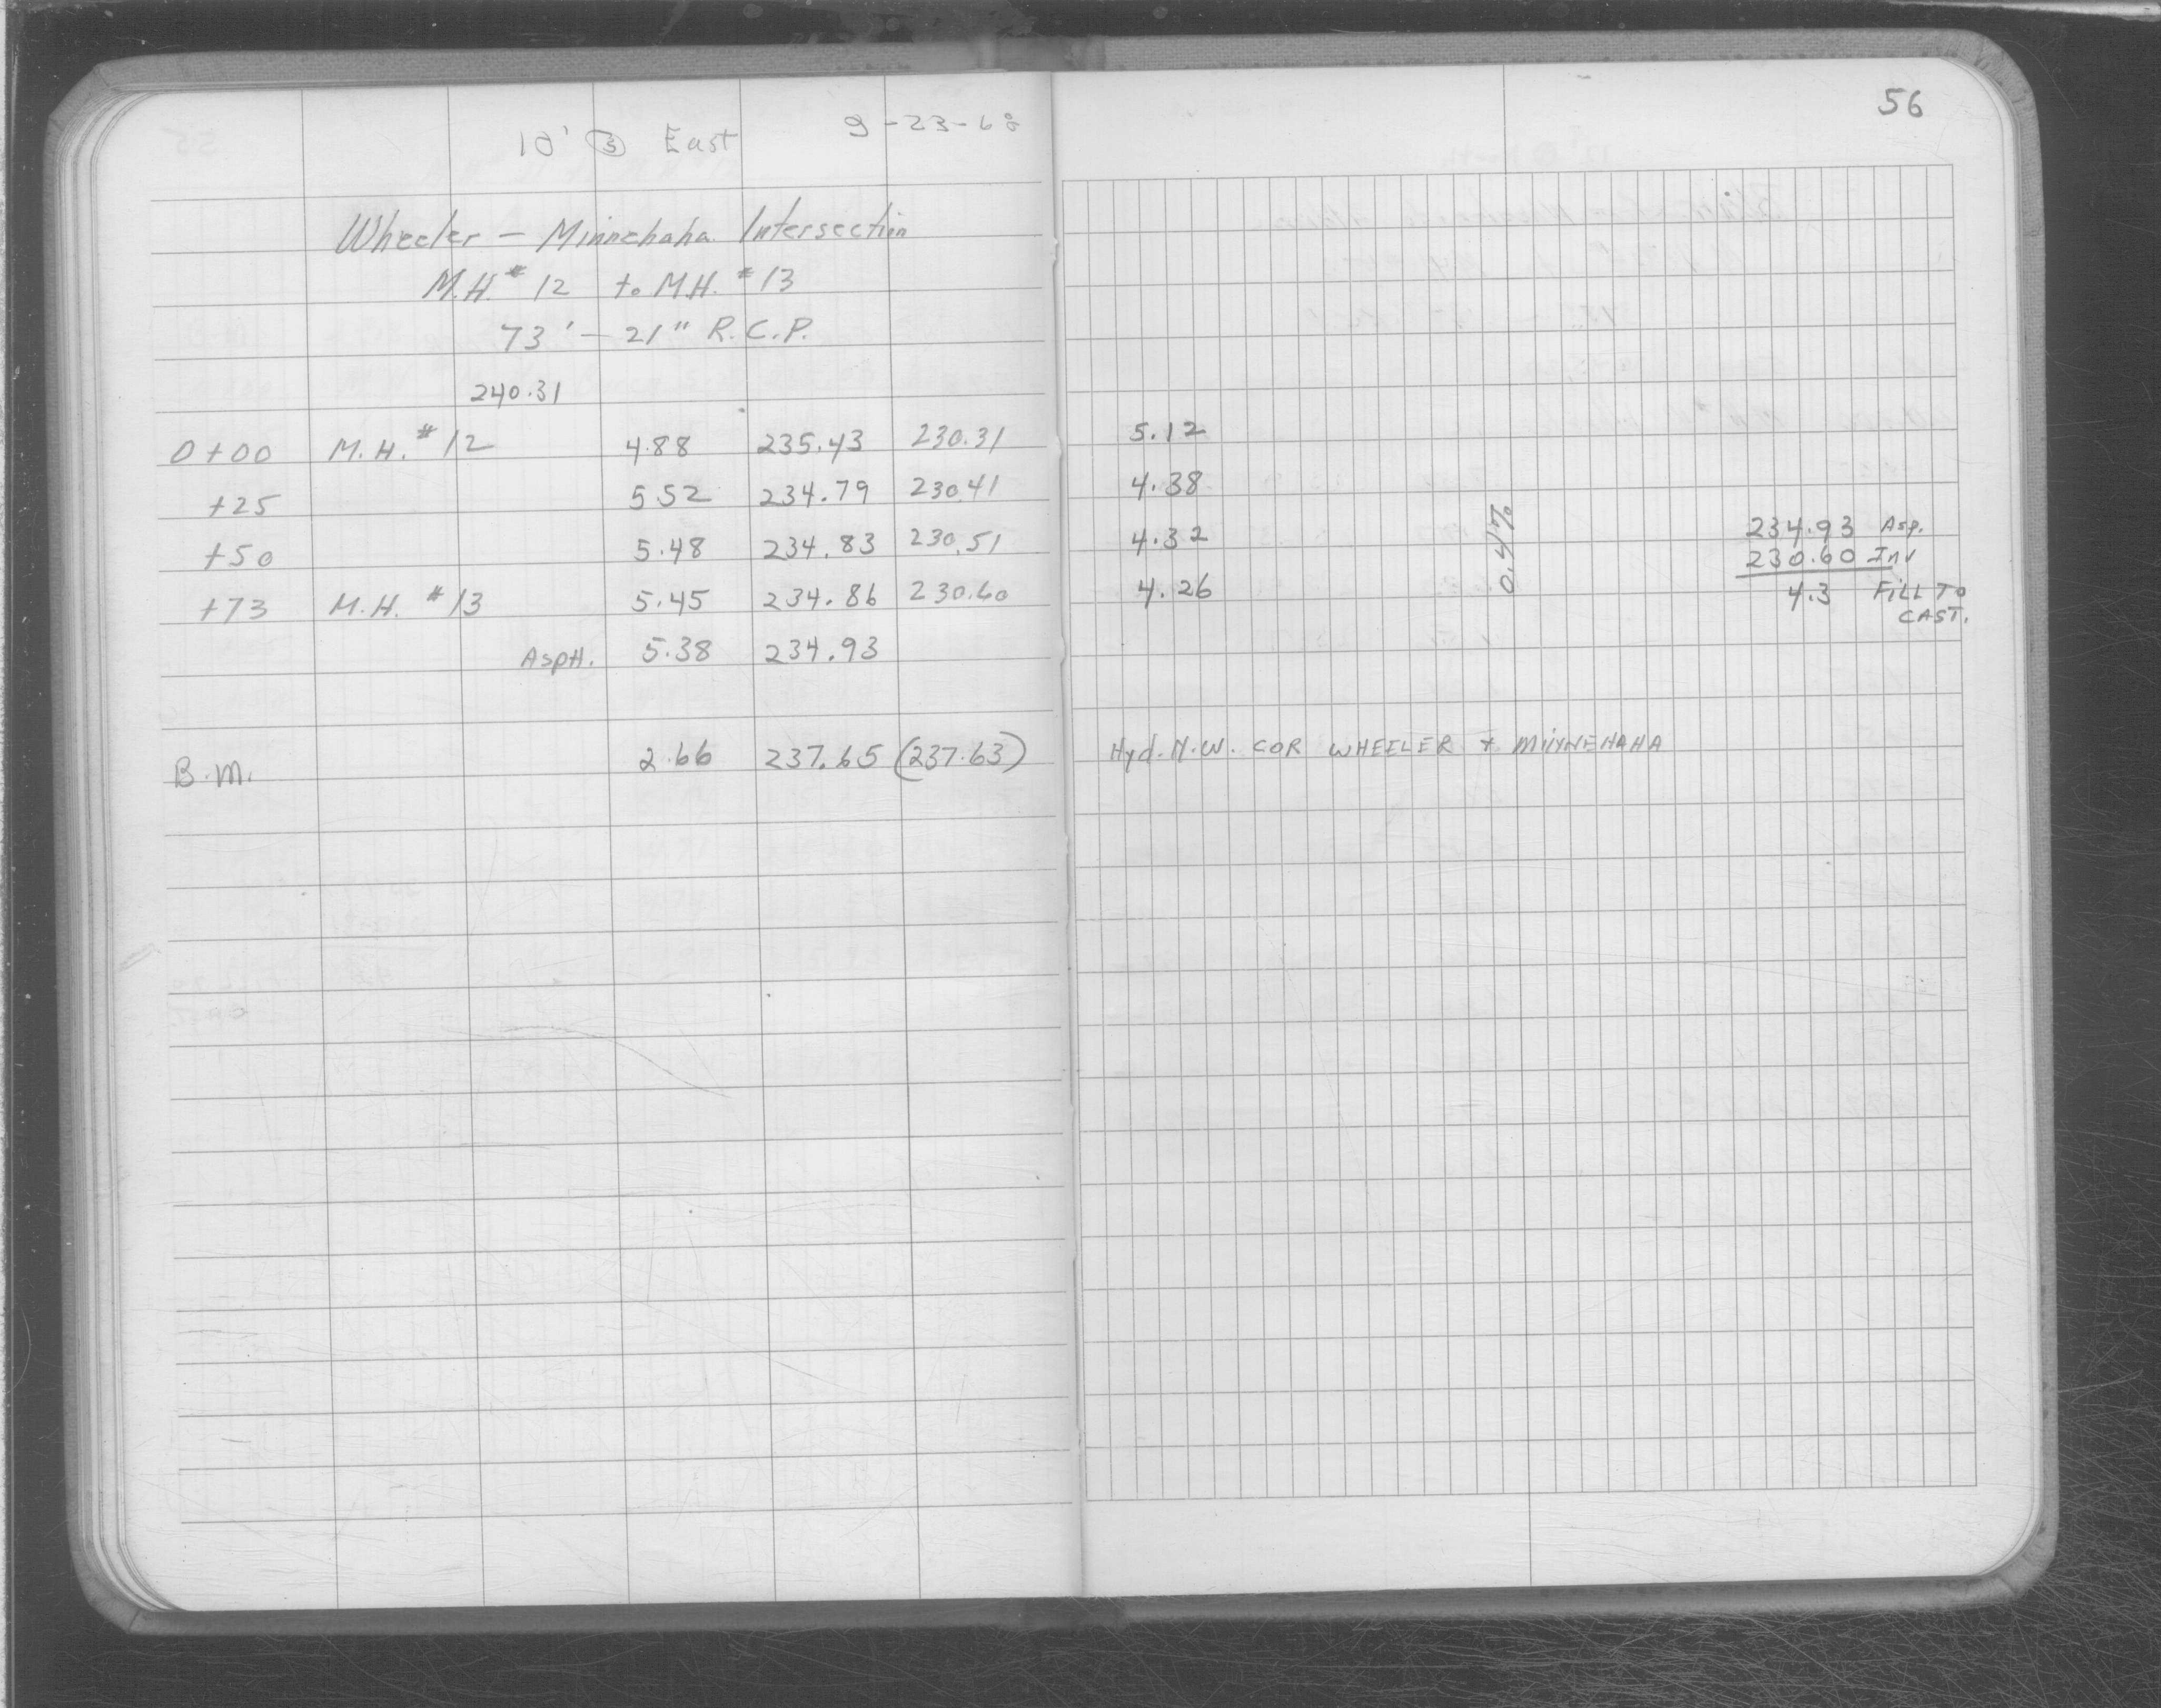 56
10' ③ East 9-23-68
Wheeler - Minnehaha Intersection
M.H. # 12 to M.H. # 13
73' - 21" R.C.P.
240.31
0+00 M.H. # 12 4.88 235.43 230.31 5.12
+25 5.52 234.79 230.41 4.38
+50 5.48 234.83 230.51 4.32 0.4% 234.93 Asp.
230.60 Inv
+73 M.H. # 13 5.45 234.86 230.60 4.26 4.3 FILL TO
CAST.
ASPH. 5.38 234.93
B.M. 2.66 237.65 (237.63) Hyd. N.W. COR WHEELER + MINNEHAHA